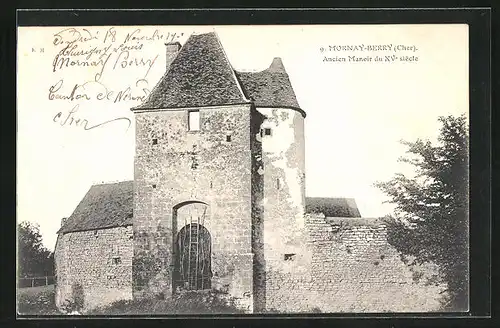 E. M.
9. MORNAY-BERRY (Cher).
Ancien Manoir du XVe siècle
Vendredi 18 Novembre
Louis
Mornay Berry
Canton de
Cher